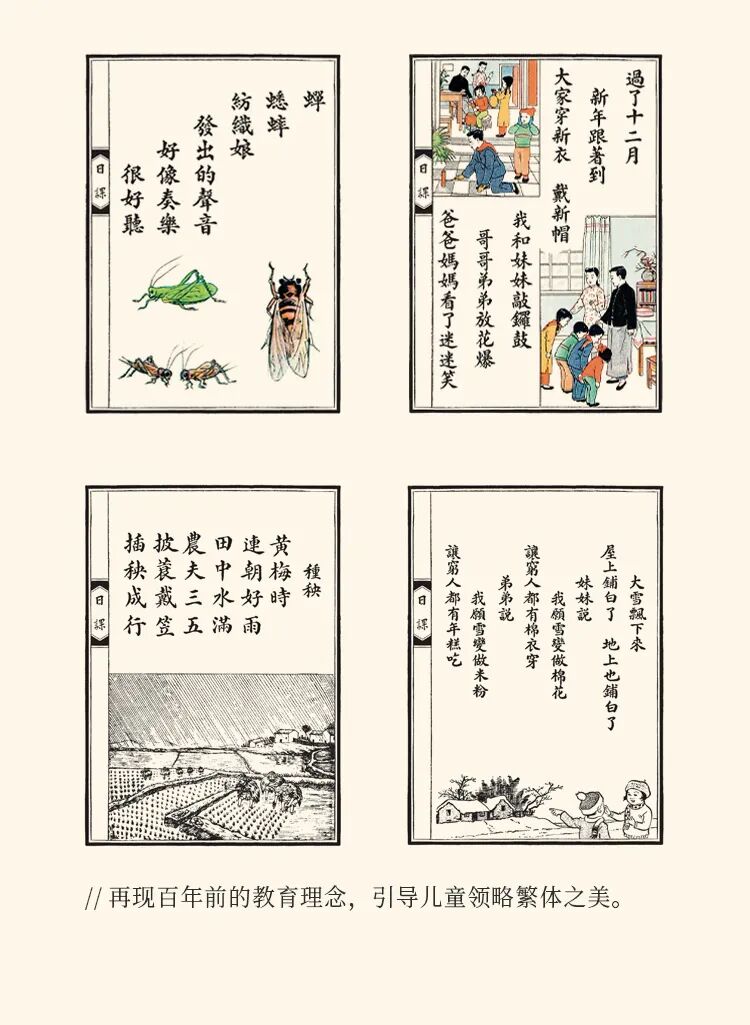 日課
蟬
蟋蟀
紡織娘
發出的聲音
好像奏樂
很好聽
日課
過了十二月
新年跟著到
大家穿新衣 戴新帽
我和妹妹敲鑼鼓
哥哥弟弟放花爆
爸爸媽媽看了迷迷笑
日課
種秧
黃梅時
連朝好雨
田中水滿
農夫三五
披蓑戴笠
插秧成行
日課
大雪飄下來
屋上鋪白了 地上也鋪白了
妹妹說
我願雪變做棉花
讓窮人都有棉衣穿
弟弟說
我願雪變做米粉
讓窮人都有年糕吃
// 再现百年前的教育理念，引导儿童领略繁体之美。